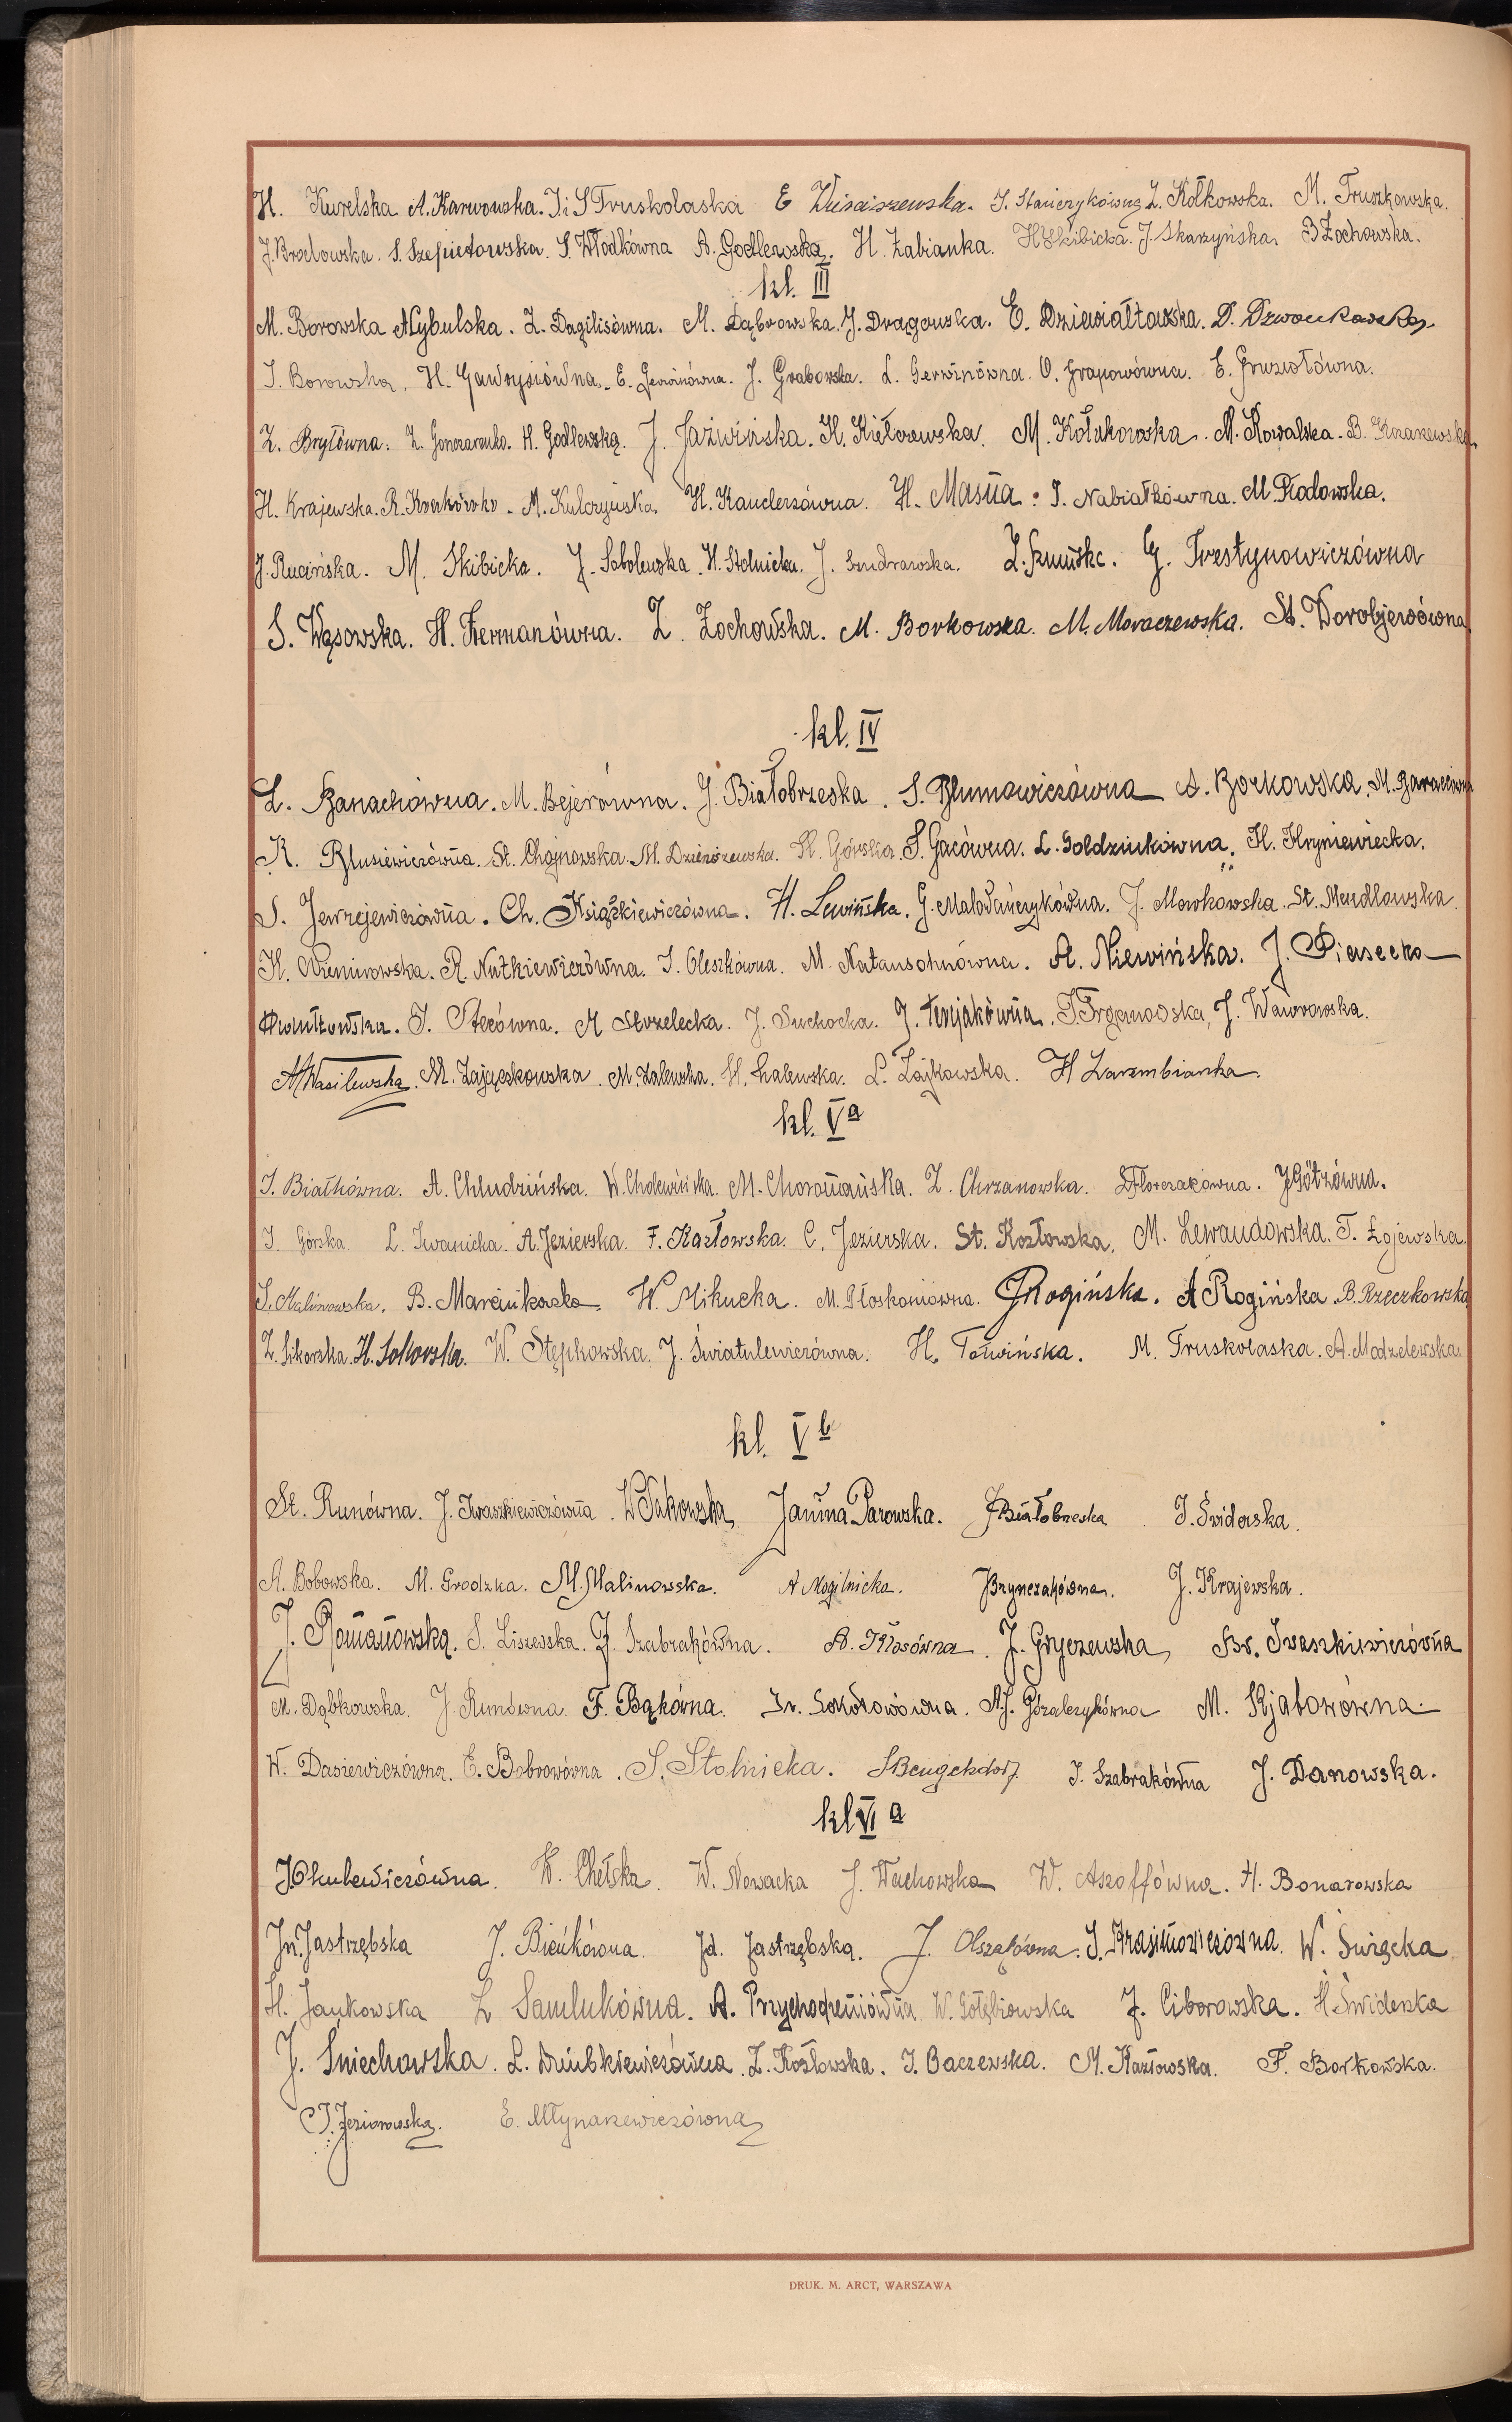 H. Kurelska A. Karwowska. J. i S Truskolaska E S. Stańczykówna Z. Kołkowska. M. Truszkowska.
J. Brzelowska. S. Szepietowska. S. Włodkówna A. Godlewska. H. Żabianka. H Skibicka. J. Skarzyńska. B Żochowska.
kl. III
M. Borowska A Cybulska. Z. Dagilisówna. M. Dąbrowska. J. Drągowska. E. Dziewiałtowska. D. Dzwonkowska.
J. Borowska. H. Gawrysiówna. E. Gerwinówna. J. Grabowska. L. Gerwinówna. O. Grapowówna. E. Gruziołówna.
Z. Bryłówna. Z. Gonczarenko. H. Godlewską. J. Jaźwińska. H. Kiełczewska. M. Kołakowska. M. Kowalska. B.
H. Krajewska. R. M. Kulczyńska. H. Kanclerzówna. H. Masna. J. Nabiałkówna. M. Rodowska.
J. Rucińska. M. Skibicka. J. Sobolewska. H. Stolnicka. J. L. G. Trestynowiczówna
S. Wąsowska. H. Hermanówna. Z. Żochowska. M. Borkowska. M. Moraczewska. St. Worobjewówna.
kl. IV
L. Banachówna. M. Bejerówna. J. Białobrzeska. S. Blumowiczówna A. Borkowska. M.
K. Blusiewiczówna. St. Chojnowska. M. H. Górska. S. Gacówna. L. Goldzinkówna. H. Hryniewiecka.
S. Jewrejewiczówna. Ch. Książkiewiczówna. H. Lewińska. G. Małowańczykówna. J. Mowkowska. St. Mendlowska.
H. Niemirowska. R. Nutkiewiczówna. J. Oleszkówna. M. Natansohnówna. A. Niewińska. J. Piasecka
J. Stecówna. A Strzelecka. J. Suchocka. J. Terejakówna. J. Wawrowska.
A Wasilewska. M. Zajączkowska. M. Zalewska. H. Zalewska. L. Zajkowska. H Zarembianka.
kl. Va
J. Białkówna. A. Chludzińska. W. Cholewińska. M. Choromańska. Z. Chrzanowska. S Florczakówna. J Götzówna.
J. Górska. L. Iwanicka. A. Jezierska. F. Kozłowska. C. Jezierska. St. Kozłowska. M. Lewandowska. T. Łojewska.
S. Malinowska. B. Marcinkowska. W. Mikucka. M. Płoskoniówna. J Rogińska. A Rogińska. B. Rzeczkowska
Z. Sikorska. H. Sokowska. W. Stępkowska. J. Światulewiczówna. H. Towińska. M. Truskolaska. A. Modzelewska.
kl. Vb
St. Runówna. J. Iwaszkiewiczówna. W Sakowska. Janina Parowska. J Białobrzeska J. Świderska.
A. Bobowska. M. Grodzka. M. Malinowska. A Mogilnicka. J Brynczakówna. J. Krajewska.
J. Romanowską. S. Liszewska. Z. Szabrakówna. A. Kłosówna. J. Gryczewska, Br. Iwaszkiewiczówna
M. Dąbkowska. J. Runówna F. Bąkówna. Ir. Sokołowówna. A. J. Góralczykówna M. Kjabowówna.
W. Dasiewiczówna. E. Bobrowówna. S. Stolnicka. S Bengehdorf. J. Szabrakówna J. Danowska.
kl VI a
J Okulewiczówna. W. Chełska. W. Nowacka J. Wachowska W. Aszoffówna. H. Bonarowska
Jn. Jastrzębska J. Bieńkówna. Jd. Jastrzębską. J. Olszakówna. J. Krasimowiczówna. W. Świącka.
H. Jankowska Z Samlukówna. A. Przychodzeniówna W. Gołębiowska J. Ciborowska. H Świderska
J. Śniechowska. L. Z. Kozłowska. J. Baczewska. M. Kozłowska. F. Borkowska.
J. Jeziorowską. E. Młynarzewiczówna
DRUK. M. ARCT, WARSZAWA